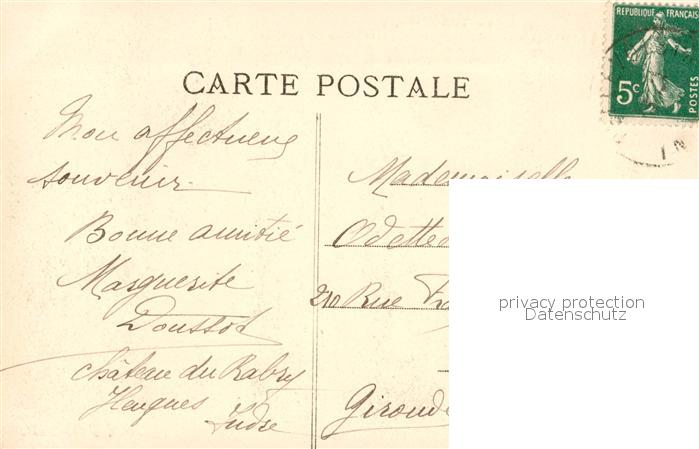 RÉPUBLIQUE FRANÇAISE
5c
POSTES
CARTE POSTALE
Mon affectueux
souvenir
Bonne amitié
Marguerite
Doussot
Château du
Heugnes
Indre
Mademoiselle
Odette
210 Rue
Gironde
privacy protection
Datenschutz